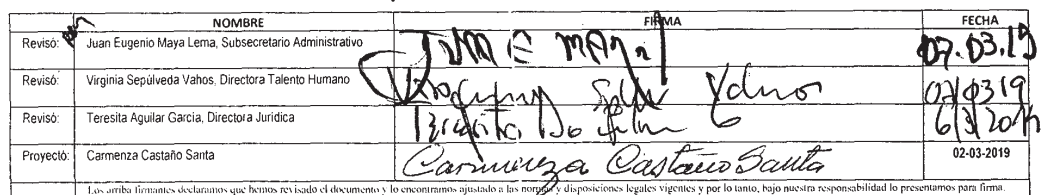 NOMBRE FIRMA FECHA
Revisó: Juan Eugenio Maya Lema, Subsecretario Administrativo 07.03.19
Revisó: Virginia Sepúlveda Vahos, Directora Talento Humano 07/03/19
Revisó: Teresita Aguilar García, Directora Jurídica
Proyectó: Carmenza Castaño Santa Carmenza Castaño Santa 02-03-2019
Los arriba firmantes declaramos que hemos revisado el documento y lo encontramos ajustado a las normas y disposiciones legales vigentes y por lo tanto, bajo nuestra responsabilidad lo presentamos para firma.